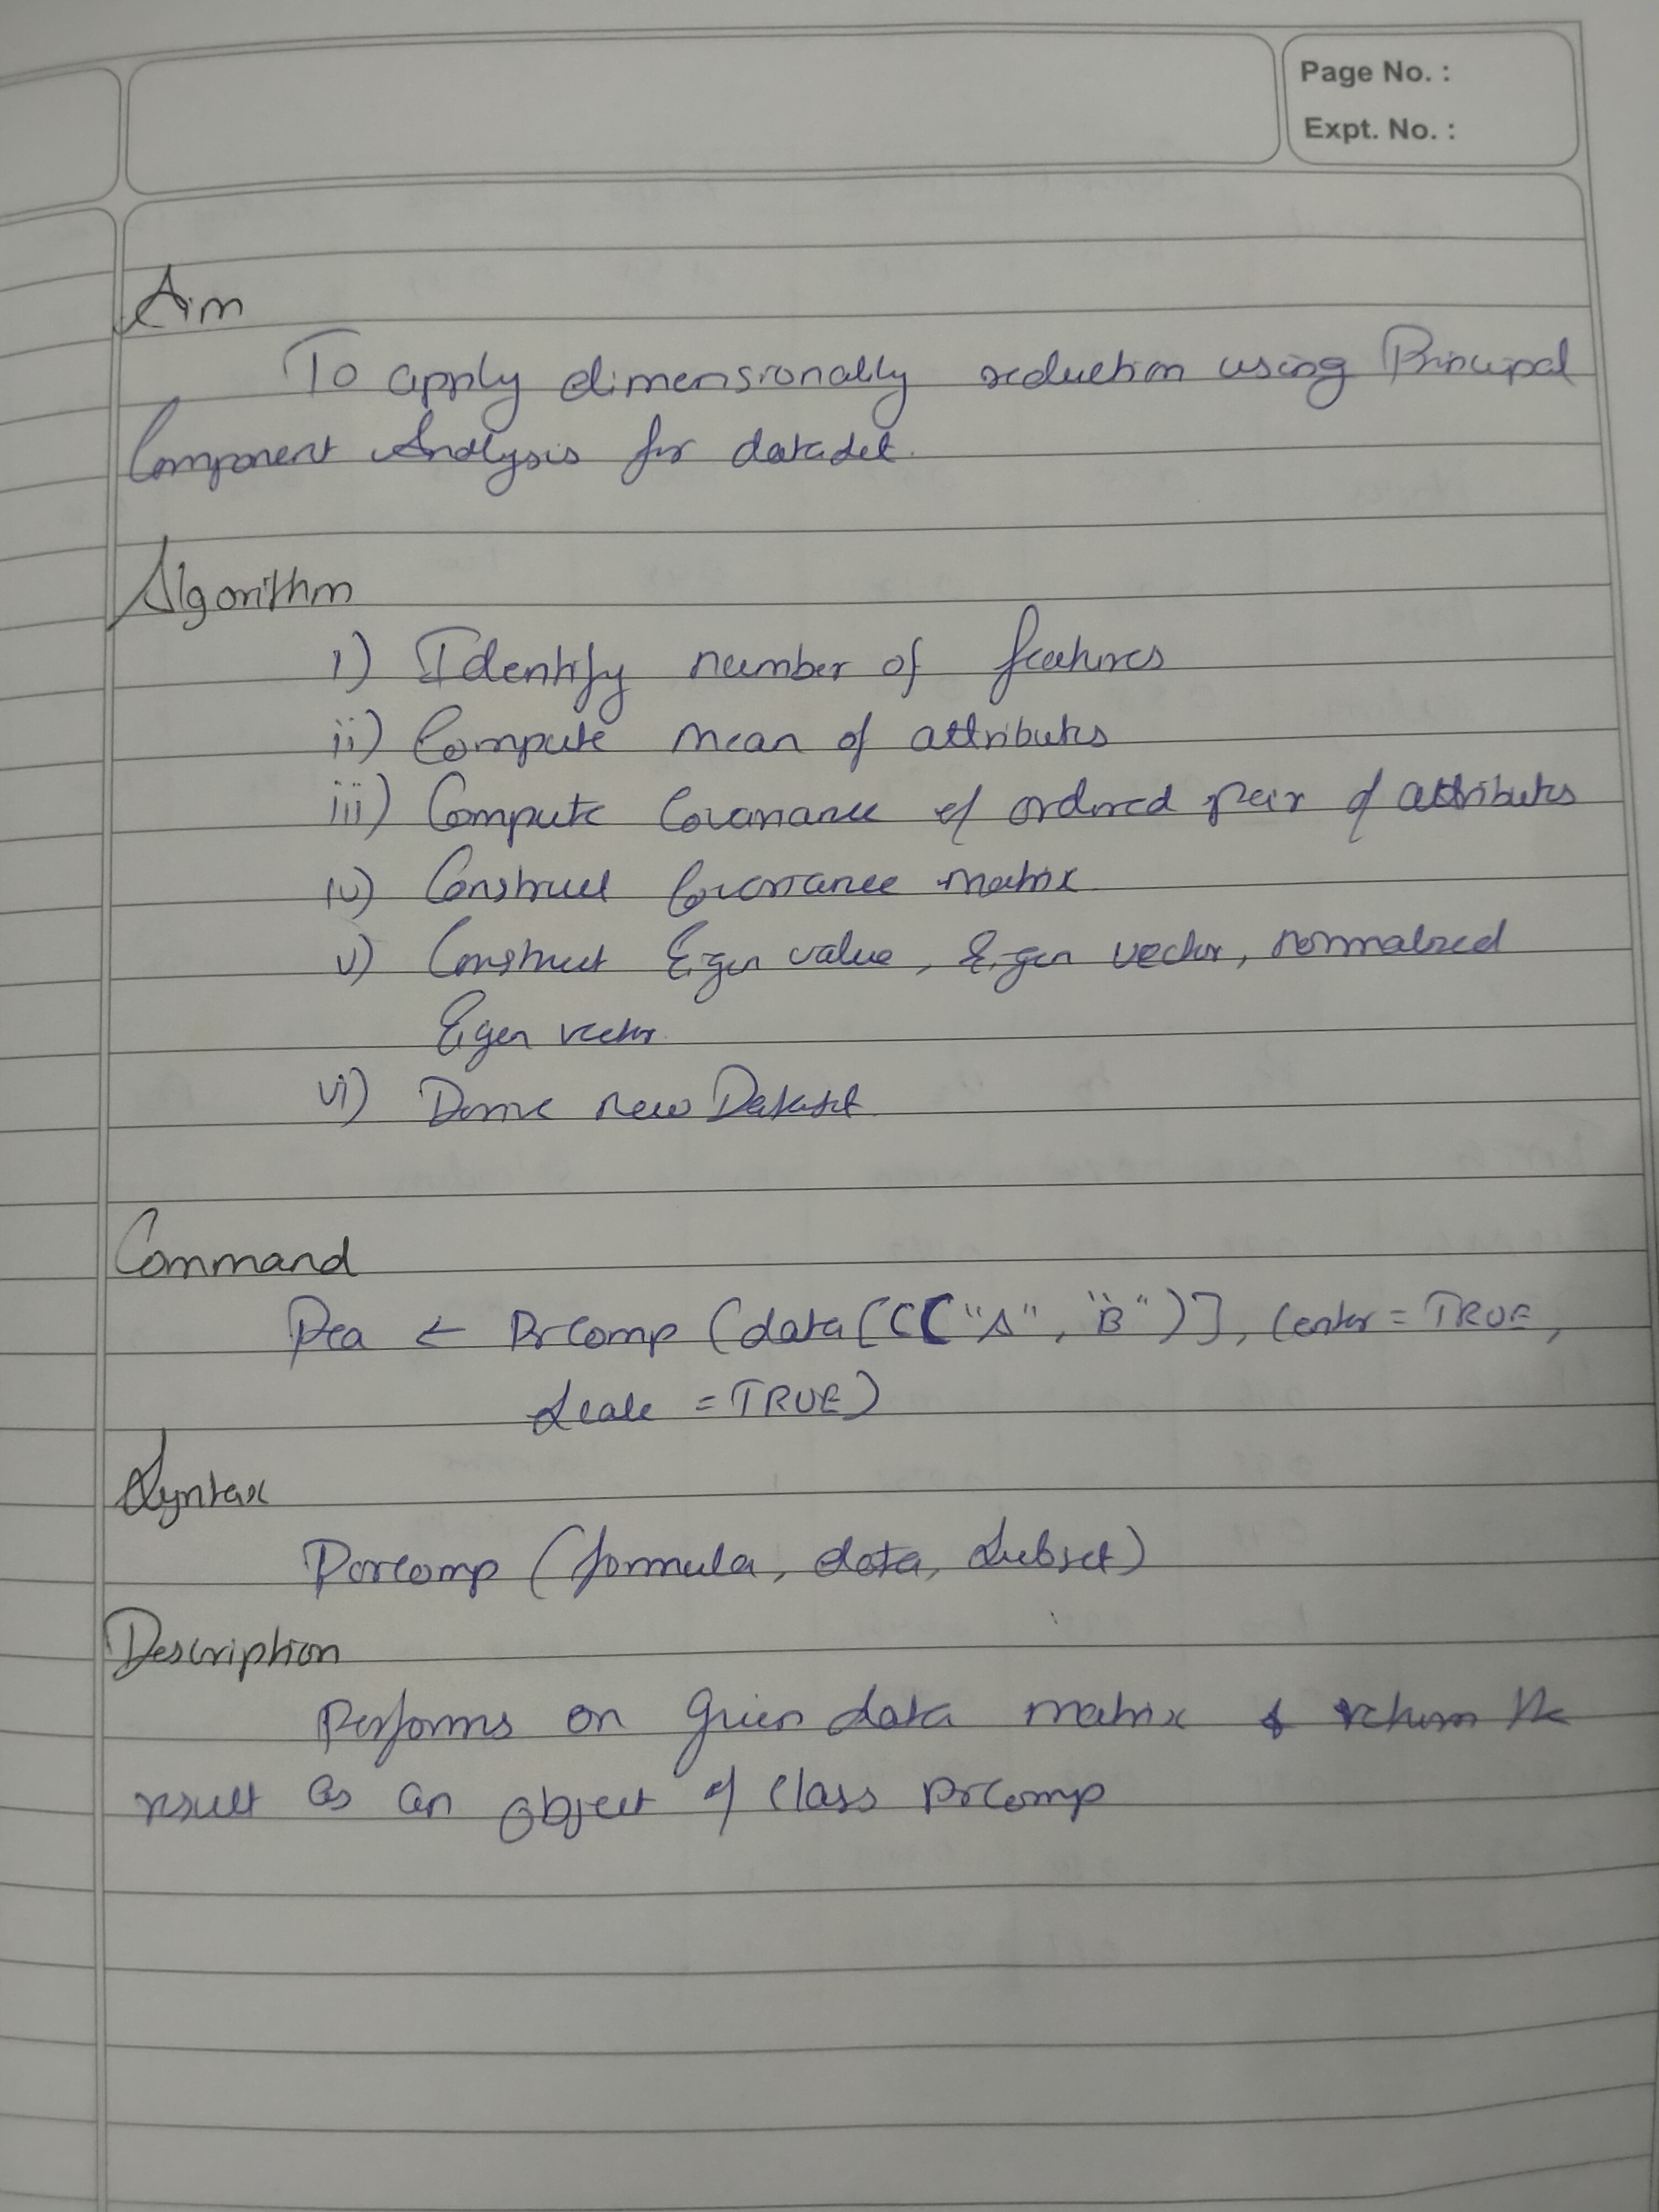 Page No. :
Expt. No. :
Aim
To apply dimensionally reduction using Principal
Component Analysis for dataset.
Algorithm
i) Identify number of features
ii) Compute mean of attributes
iii) Compute Covariance of ordered pair of attributes
iv) Construct Covariance matrix
v) Construct Eigen value, Eigen vector, normalized
Eigen vector.
vi) Derive new Dataset
Command
Pca ← Prcomp (data[c("A", "B")], Center = TRUE,
Scale = TRUE)
Syntax
Porcomp (formula, data, Subset)
Description
Performs on given data matrix & return the
result as an object of class Prcomp